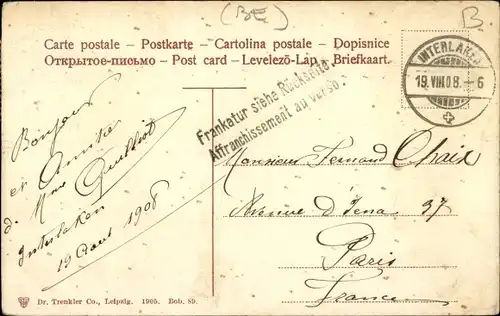 (BE)
B
Carte postale – Postkarte – Cartolina postale – Dopisnice
Открытое-письмо – Post card – Levelező-Lap – Briefkaart.
INTERLAKEN
19.VIII.08.–6
Frankatur siehe Rückseite.
Affranchissement au verso.
Bonjour
et Amitié
d. Mme Guilliot
Interlaken
19 Aout 1908
Monsieur Fernand Chaix
Avenue d'Iena. 37
Paris
France
Dr. Trenkler Co., Leipzig. 1905. Bob. 89.